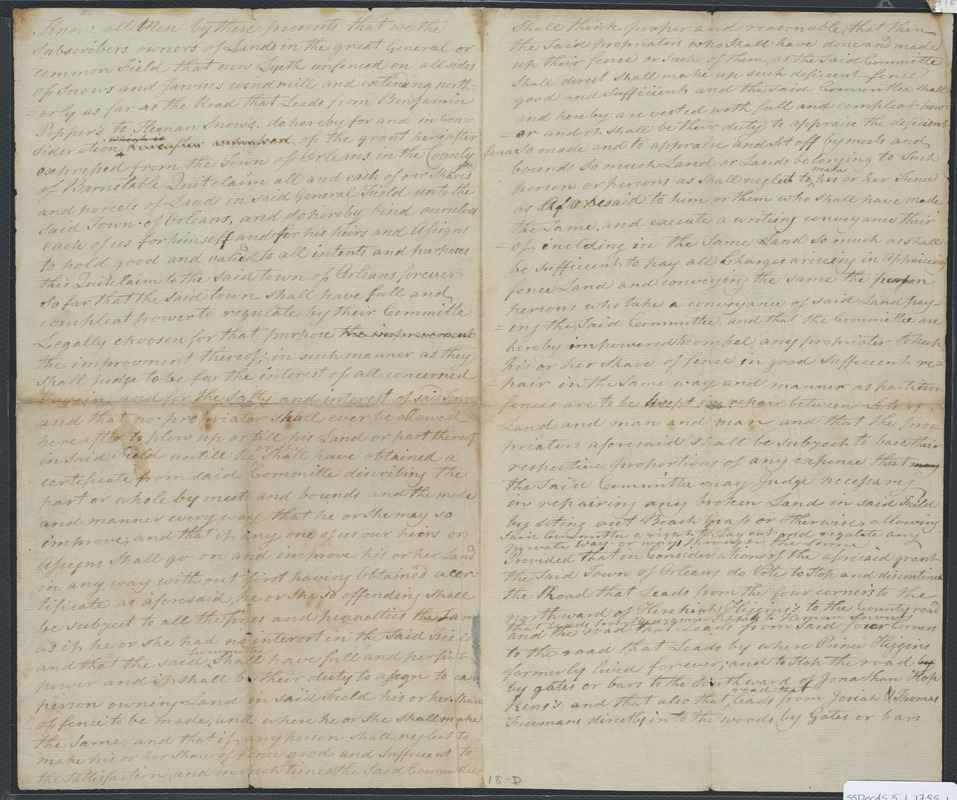 Know all Men by these presents that we the
Subscribers owners of Land in the great General or
common Field that now Lyeth unfenced on all sides
of Snows and Jarvises windmill and extending north-
=erly as far as the Road that Leads from Benjamin
Pepper's to Heman Snow's. do hereby for and in Con-
sideration of the grant hereafter
expressed from the Town of Orleans in the County
of Barnstable Quitclaim all and each of our Shares
and parcels of Land in said General Field unto the
Said Town of Orleans, and do hereby bind ourselves
each of us for himself and for his heirs and Assigns
to hold good and valid to all intents and purposes
this Quitclaim to the said town of Orleans forever
So far that the said town Shall have full and
compleat power to regulate by their Committe
Legally choosen for that purpose the improvement
the improvment thereof, in such manner as they
Shall judge to be for the interest of all concerned
therein and for the Safty and interest of said town
and that no proprietor shall ever be allowed
here after to plow up or till his Land or part thereof
in said Field untill he Shall have obtained a
certificate from said Committe discribing the
part or whole by meets and bounds and the mode
and manner every way that he or She may so
improve, and that if any one of us our heirs or
Assigns Shall go on and improve his or her Land
in any way with out first having Obtained a cer-
tificate as aforesaid, he or She so offending Shall
be subject to all the fines and pennalties the Same
as if he or she had no interest in the Said Field
and that the said Committe Shall have full and perfict
power and it shall be their duty to assign to each
person owning Land in said Field his or her Share
of fence to be made, and where he or She Shall make
the Same, and that if any person Shall neglect to
make his or her Share of fence good and Sufficient to
the Satisfaction, and in Such time as the Said Committee
Shall think proper and reasonable, that then
the Said propriators who Shall have done and made
up their fence or Such of them, as the Said Committe
Shall direct Shall make up such deficient fence
good and Sufficient and the said Committee Shall
and hereby are vested with full and compleat pow-
=er and it shall be their duty to appraise the deficient
fence So made and to appraise and Set off by meets and
bounds So much Land or Lands belonging to Such
person or persons as Shall neglect to make his or her Fence
as Aforesaid to him or them who Shall have made
the Same, and execute a writing conveyance their
=of, including in the Same Land so much as shall
be Sufficient to pay all Charges arising in apprising
fence Land and conveying the same the person
persons who take a conveyance of said Land pay-
=ing the Said Committee. and that the Committee are
hereby impowered to compel any propriater to keep
his or her Share of fence in good Sufficient re-
=pair in the Same way and manner as partition
fences are to be kept in repair between Lot of
Land and man and man, and that the pro-
priators aforesaid shall be Subject to bare their
respective proportions of any expence that may
the Said Committe may Judge necessary
in repairing any broken Land in said Field
by seting out Beach Grass or otherwise, allowing
Said Committe a right to Lay out and regulate any
private Way or ways through the Same
Provided that in Consideration of the aforesaid grant
the Said Town of Orleans do Vote to Stop and discontinue
the Road that Leads from the four corners to the
northward of Hezekiah Higgins's to the County road
and the road that Leads from Said four corners
to the road that Leads by where Prince Higgins
formerly lived forever; and to Stop the road by
by gates or bars to the Southward of Jonathan Hop
kins's, and that also that road that leads from Josiah & Thomas
Freemans directly in to the woods, by Gates or bars
18-D